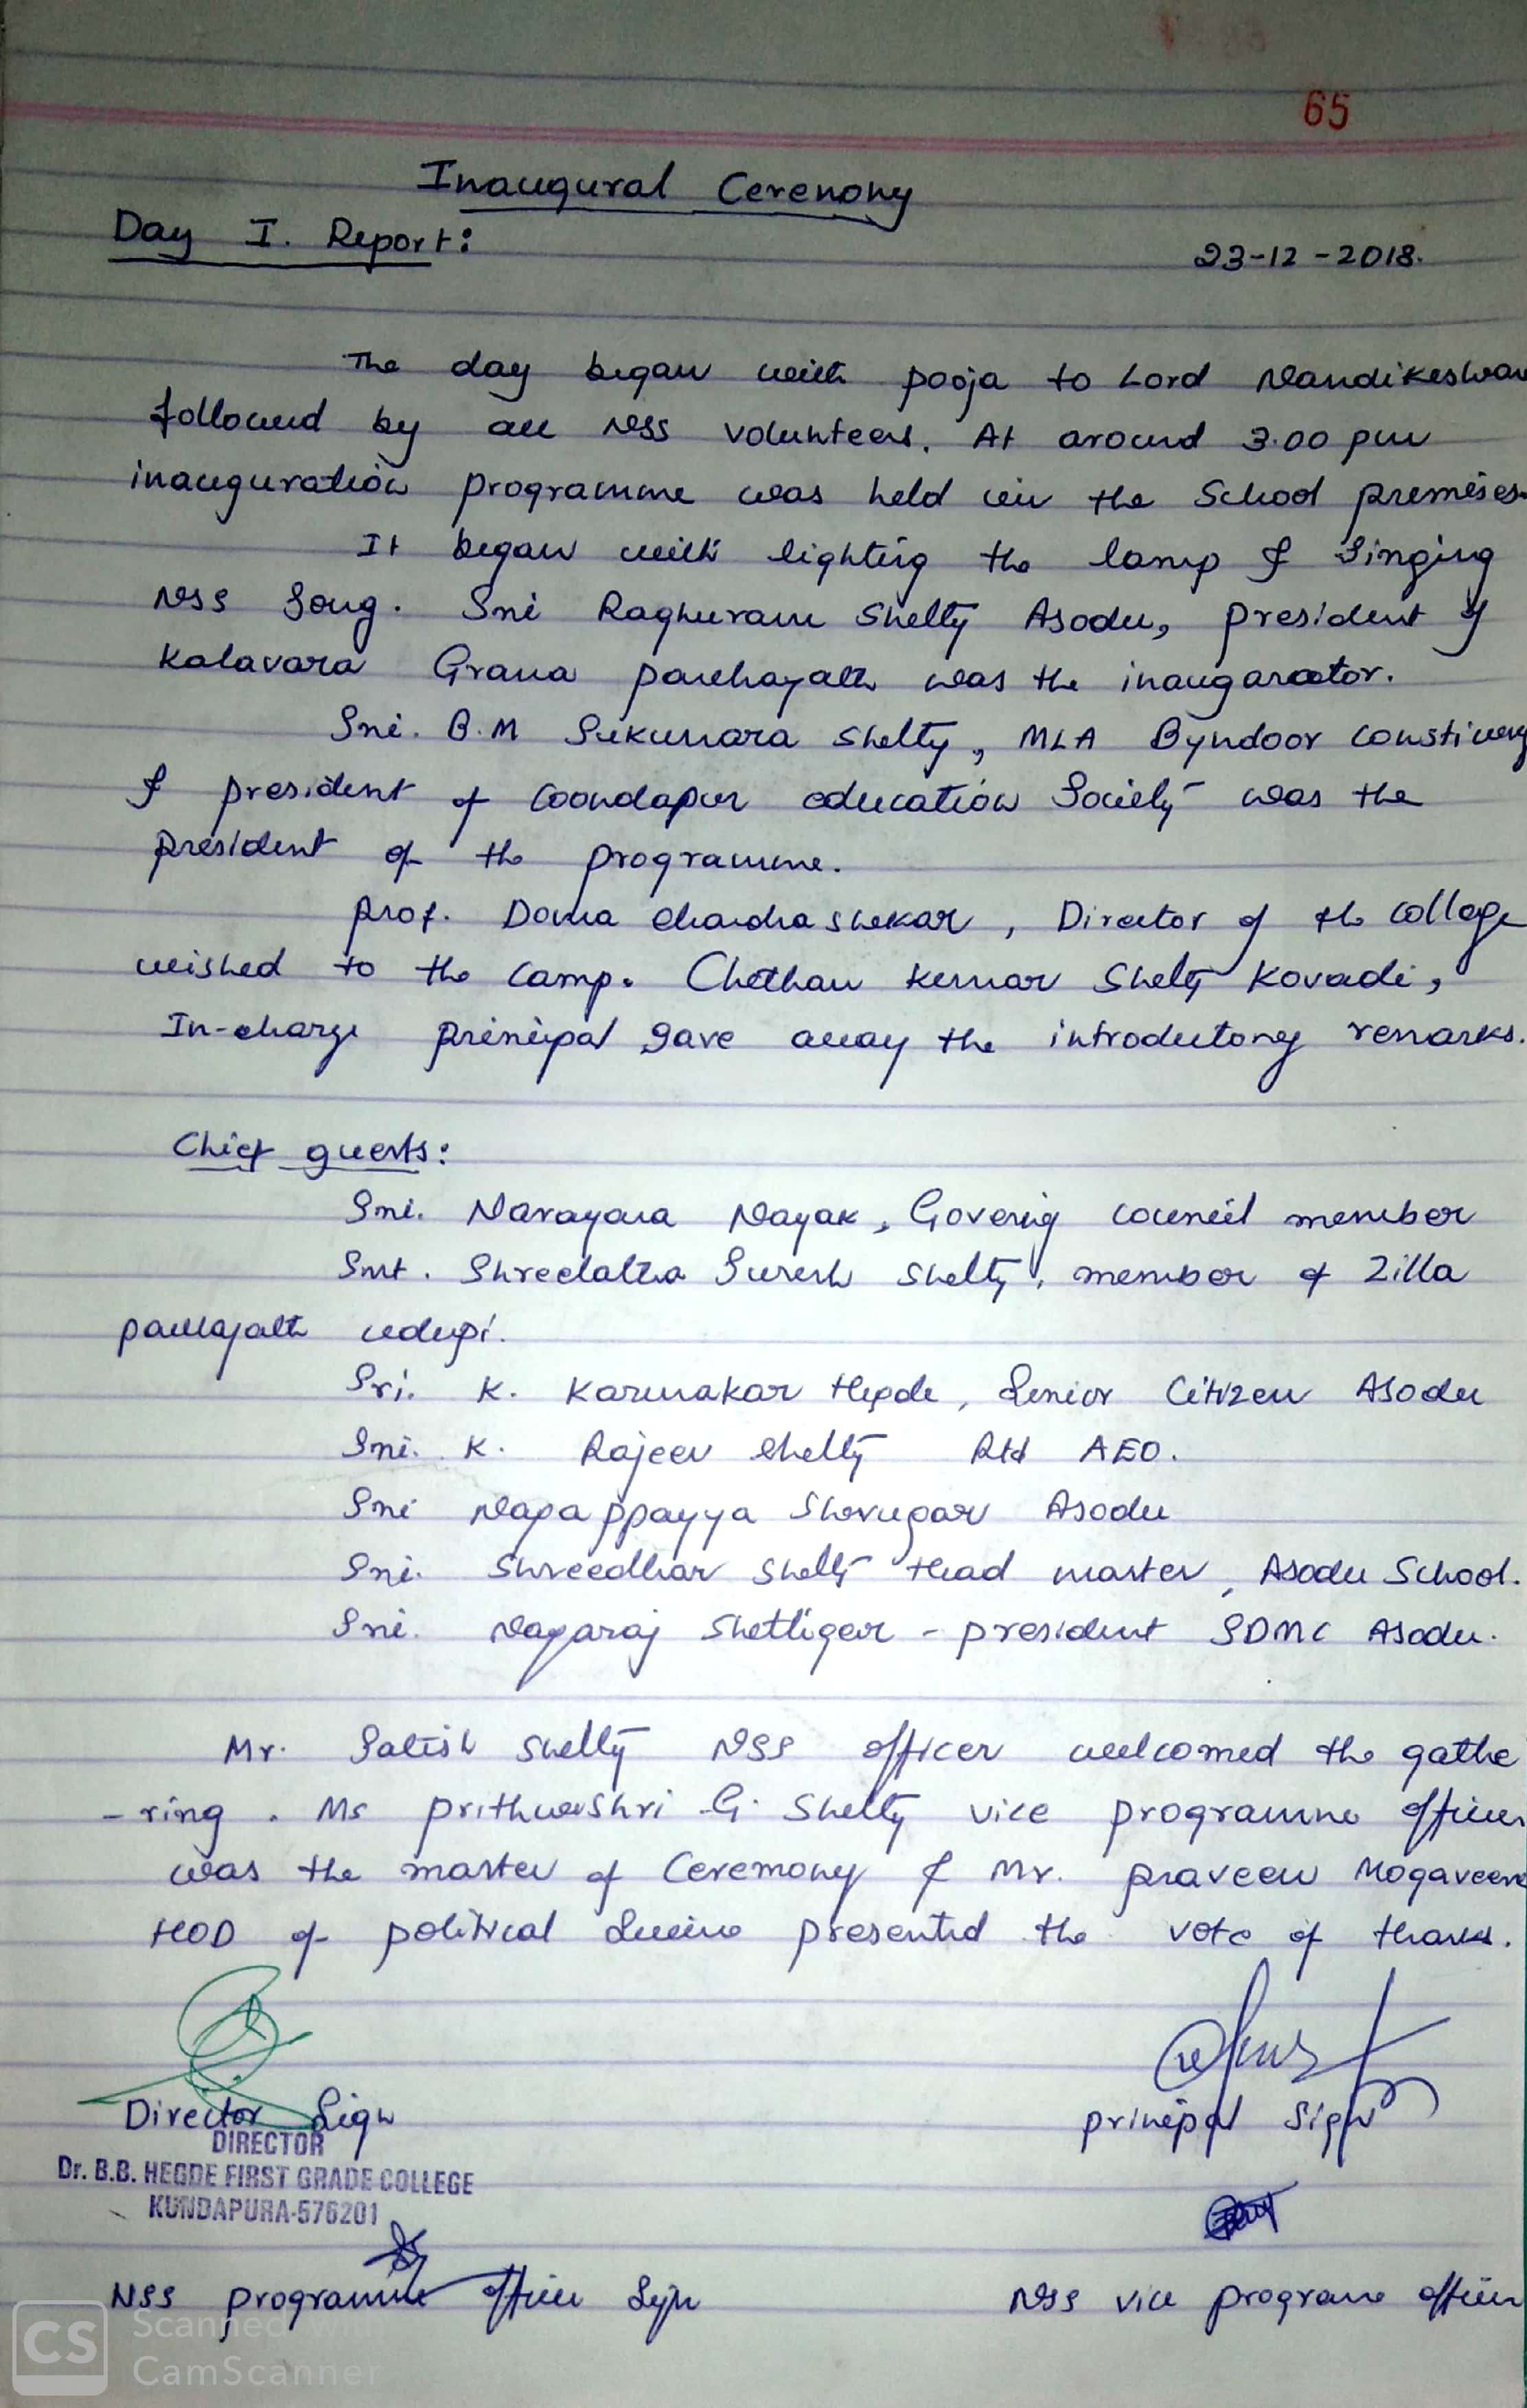 65
Inaugural Ceremony
Day I. Report:
23-12-2018.
The day began with pooja to Lord Nandikeshwar
followed by all NSS volunteers. At around 3.00 pm
inauguration programme was held in the School premises.
It began with lighting the lamp & Singing
NSS Song. Sri Raghuram Shetty Asodu, president of
Kalavara Grama panchayath was the inaugarator.
Sri. B.M Sukumara Shetty, MLA Byndoor
& president of Coondapur education Society was the
president of the programme.
prof. Doma Chandrashekar, Director of the College
wished to the camp. Chethan Kumar Shetty Kovadi,
In-charge principal gave away the introductory remarks.
Chief guests:
Sri. Narayana Nayak, Govering council member
Smt. Shreelatha Suresh Shetty, member of Zilla
panchayath udupi.
Sri. K. Karunakar Hegde, Senior Citizen Asodu
Sri. K. Rajeev Shetty Rtd AEO.
Sri Nagappayya Sherugar Asodu
Sri. Shreedhar Shetty Head master, Asodu School.
Sri. Nagaraj Shettigar - president SDMC Asodu.
Mr. Satish Shetty NSS officer welcomed the gathe
-ring. Ms Prithwishri G. Shetty vice programme officer
was the master of Ceremony & Mr. praveen Mogaveera
HOD of political Science presented the vote of thanks.
Director Sign
principal Sign
DIRECTOR
Dr. B.B. HEGDE FIRST GRADE COLLEGE
KUNDAPURA-576201
NSS programme officer Sign
NSS vice programe officer
CS Scanned with
CamScanner